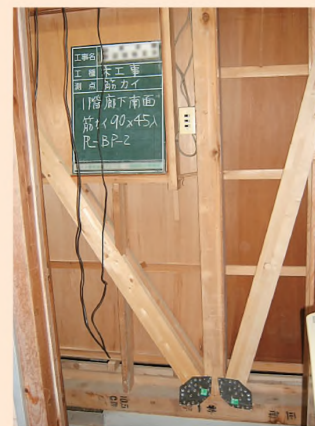 工事名
工種 木工事
測点 筋カイ
1階廊下南面
筋カイ90×45入
R-BP-2